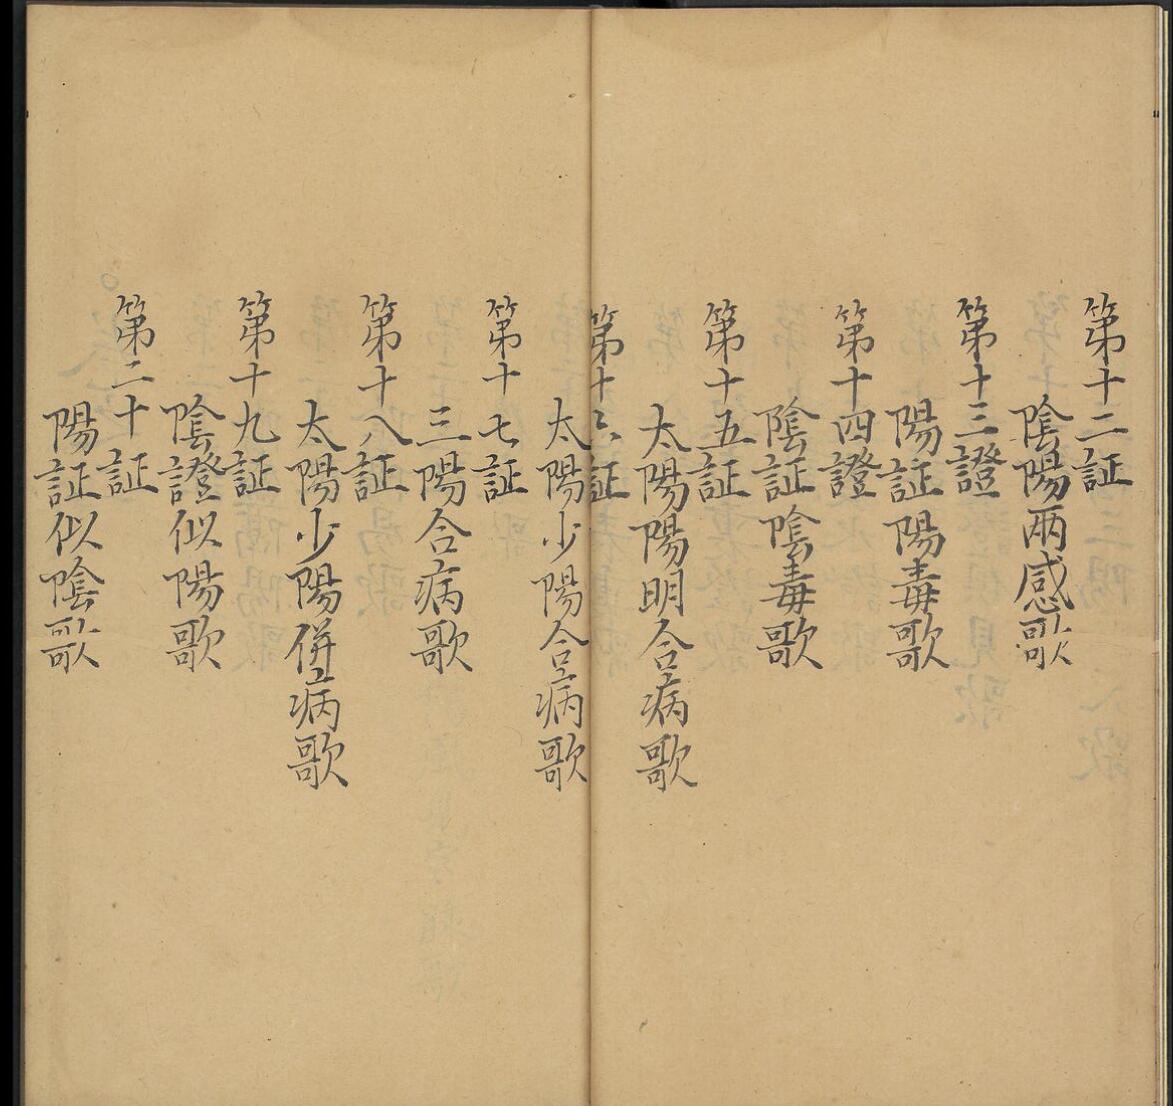 第十二証
陰陽兩感歌
第十三證
陽証陽毒歌
第十四證
陰証陰毒歌
第十五証
太陽陽明合病歌
第十六証
太陽少陽合病歌
第十七証
三陽合病歌
第十八証
太陽少陽併病歌
第十九証
陰證似陽歌
第二十証
陽証似陰歌